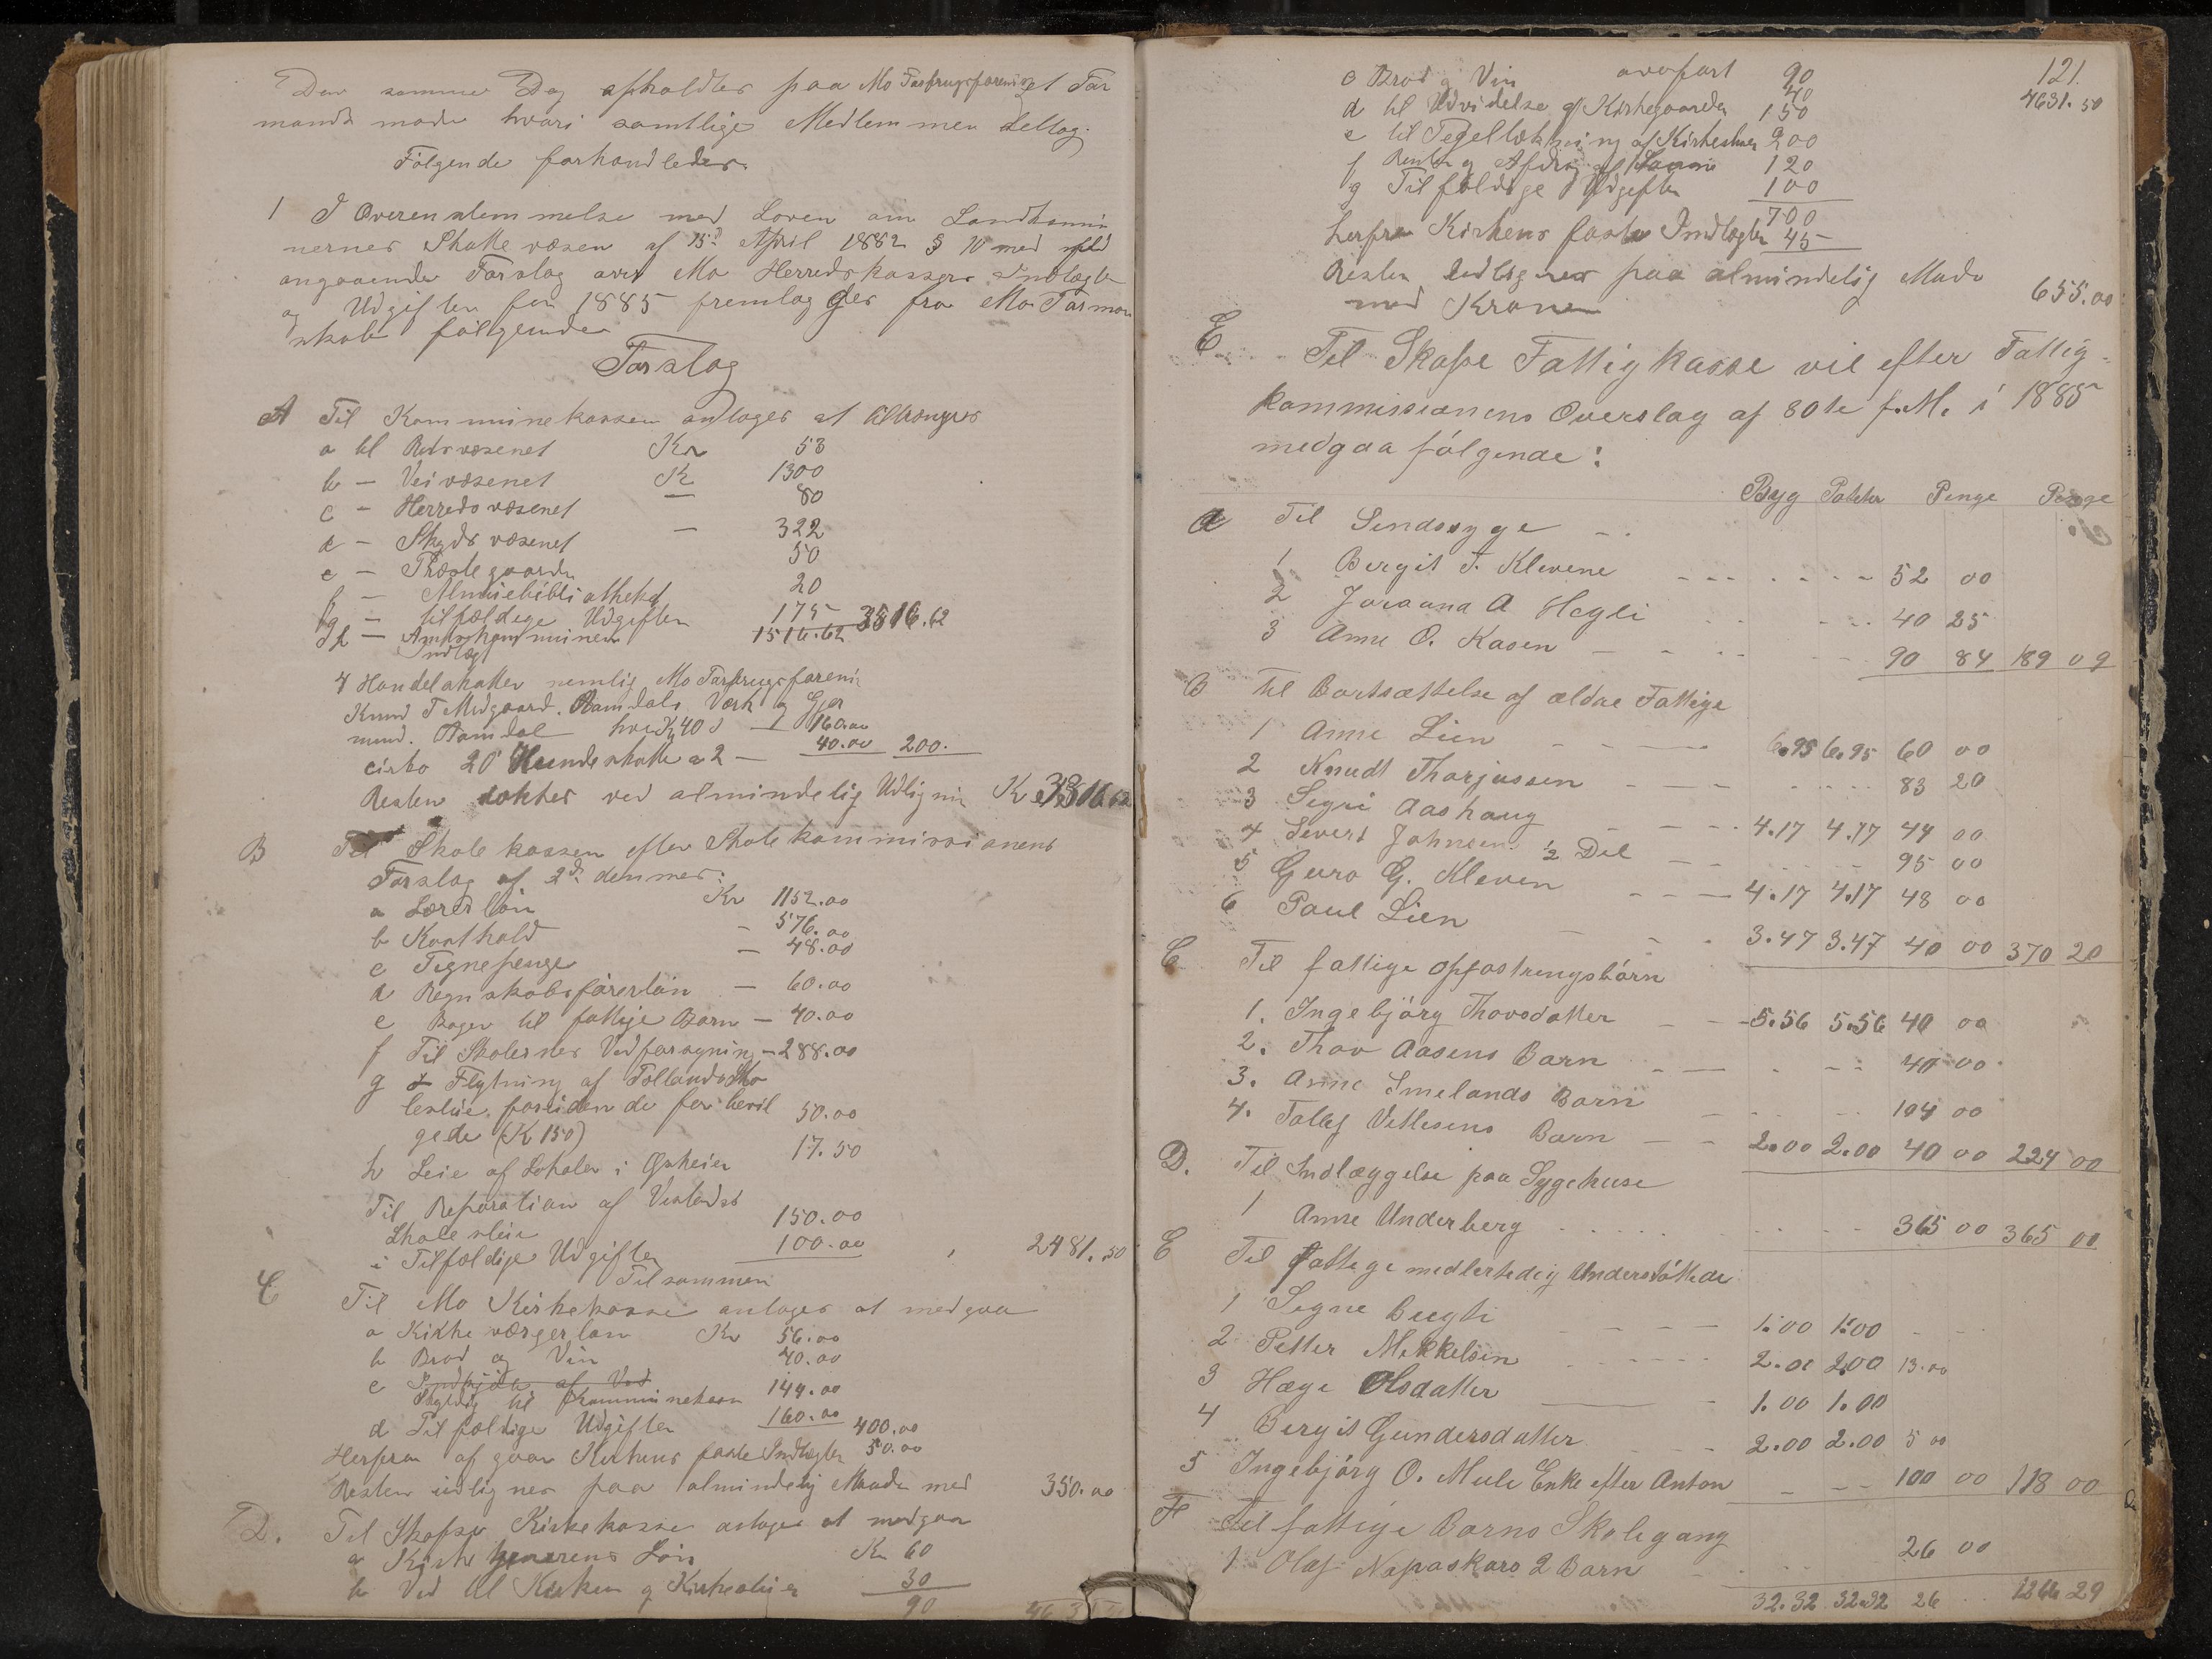 Den samme Dag afholdtes paa Mo Forbrugsforening et For
mands møde hvori samtlige Medlemmer deltog.
Følgende forhandledes.
1 I Overenstemmelse med Loven om Landkommu
nernes Skattevæsen af 15de April 1882 § 10 med
angaaende Forslag over Mo Herredskasses Indtægter
og Udgifter for 1885 fremlagdes fra Mo Forman
skab følgende
Forslag
A Til Kommunekassen antages at tiltrænges
a til Retsvæsenet Kr 53
b - Veivæsenet K 1300
c - Herredsvæsenet — 80
d - Skydsvæsenet — 322
e - Præstegaarde 50
f - Almuebibliotheket 20
g - tilfældige Udgifter 175
h - Amtskommunen 1516.62 3516.62
Indtægt
4 Handelskatter nemlig Mo Forbrugsforeni
Knud T Midgaard. Aamdals Værk og Gjer
mund. Aamdal hver K 40 — 160.00
cirka 20 Hundeskatte a 2 — 40.00 200.
Resten søktes ved almindelig Udligning K 3316.62
B Til Skolekassen efter Skolekommissionens
Forslag af 2den dennes:
a Lærerløn Kr 1152.00
b Kosthold - 576.00
c Tegnepenge — 48.00
d Regnskabsførerløn — 60.00
e Bøger til fattige Børn — 40.00
f Til Skolernes Vedforsyning - 288.00
g Flytning af Tollands Sko
lestue foruden de før bevil
gede (K 150) 50.00
h Leie af Lokaler i Øpheim 17.50
Til Reparation af Vestands
Skolestue 150.00
i Tilfældige Udgifter 100.00
Tilsammen 2481.50
C Til Mo Kirkekasse antages at medgaa
a Kirkeværgerløn Kr 56.00
b Brød og Vin 40.00
c Skyldig til Kommunekassen 144.00
d Tilfældige Udgifter 160.00 400.00
Herfra afgaar Kirkens faste Indtægter 50.00
Resten udlignes paa almindelig Maade med 350.00
D. Til Skafse Kirkekasse antages at medgaa
a Kirketjenerens Løn Kr 60
b Ved til Kirken og Kirkestuen 30
90
121.
overført 90 4631.50
c Brød og Vin 40
d til Udvidelse af Kirkegaarden 150
e til Tegeltækning af Kirkestuen 200
f Renter og Afdrag af Laanet 120
g Tilfældige Udgifter 100
700
herfra Kirkens faste Indtægter 45
Resten udlignes paa almindelig Maade
med Kroner 655.00
E. Til Skafse Fattigkasse vil efter Fattig-
kommissionens Overslag af 30te f.M. i 1885
medgaa følgende:
Byg Poteter Penge Penge
a Til Sindssyge
1 Bergit T. Klevene 52 00
2 Joraand A Hegli 40 25
3 Anne O. Kasen 90 84 189 09
B Til Bortsættelse af ældre Fattige
1 Anne Lien 6.95 6.95 60 00
2 Knudt Thorjussen 83 20
3 Signi Aashaug 4.17 4.17 44 00
4 Severt Johnsen ½ Del 95 00
5 Guro G. Kleven 4.17 4.17 48 00
6 Paul Lien 3.47 3.47 40 00 370 20
C Til fattige Opfostringsbørn
1. Ingebjørg Thovsdatter 5.56 5.56 40 00
2. Thov Aasens Barn 40 00
3. Anne Smelands Barn 104 00
4. Tollef Vetlesens Barn 2.00 2.00 40 00 224 00
D. Til Indlæggelse paa Sygehuse
1 Anne Underberg 365 00 365 00
E Til fattige midlertidig Understøttede
1 Signe Bugli 1.00 1.00
2 Petter Mikkelsen 2.00 2.00 13.00
3 Hæge Olsdatter 1.00 1.00
4 Bergit Gundersdatter 2.00 2.00 5 00
5 Ingebjørg O. Mule Enke efter Anton 100 00 118 00
F Til fattige Børns Skolegang
1 Olaf Napaskars 2 Børn 26 00
32.32 32.32 26 1266 29